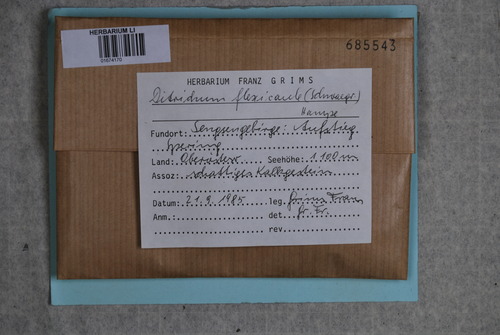 HERBARIUM LI
01674170
685543
HERBARIUM FRANZ GRIMS
Ditrichum flexicaule (Schwaegr.)
Hampe
Fundort: Sengsengebirge: Aufstieg
Land: Oberösterr. Seehöhe: 1100m
Assoz: schattiges Kalkgestein
Datum: 21.9.1985 leg. Grims Franz
Anm.: det. Gr. Fr.
rev.